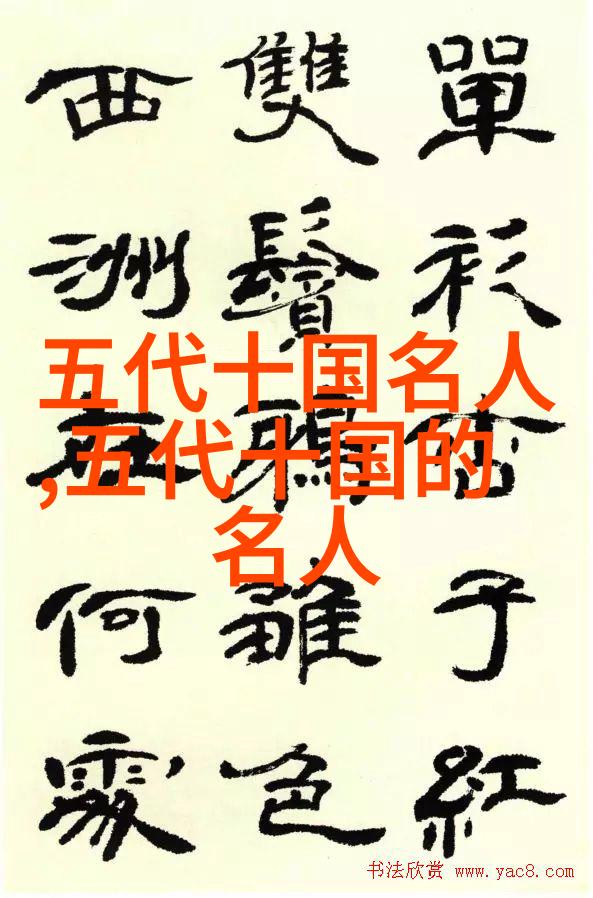 單衫杏子紅
雙鬢鴉雛色
西洲在何處
五代十国名人
,五代十国的
名人
书法欣赏 www.yac8.com